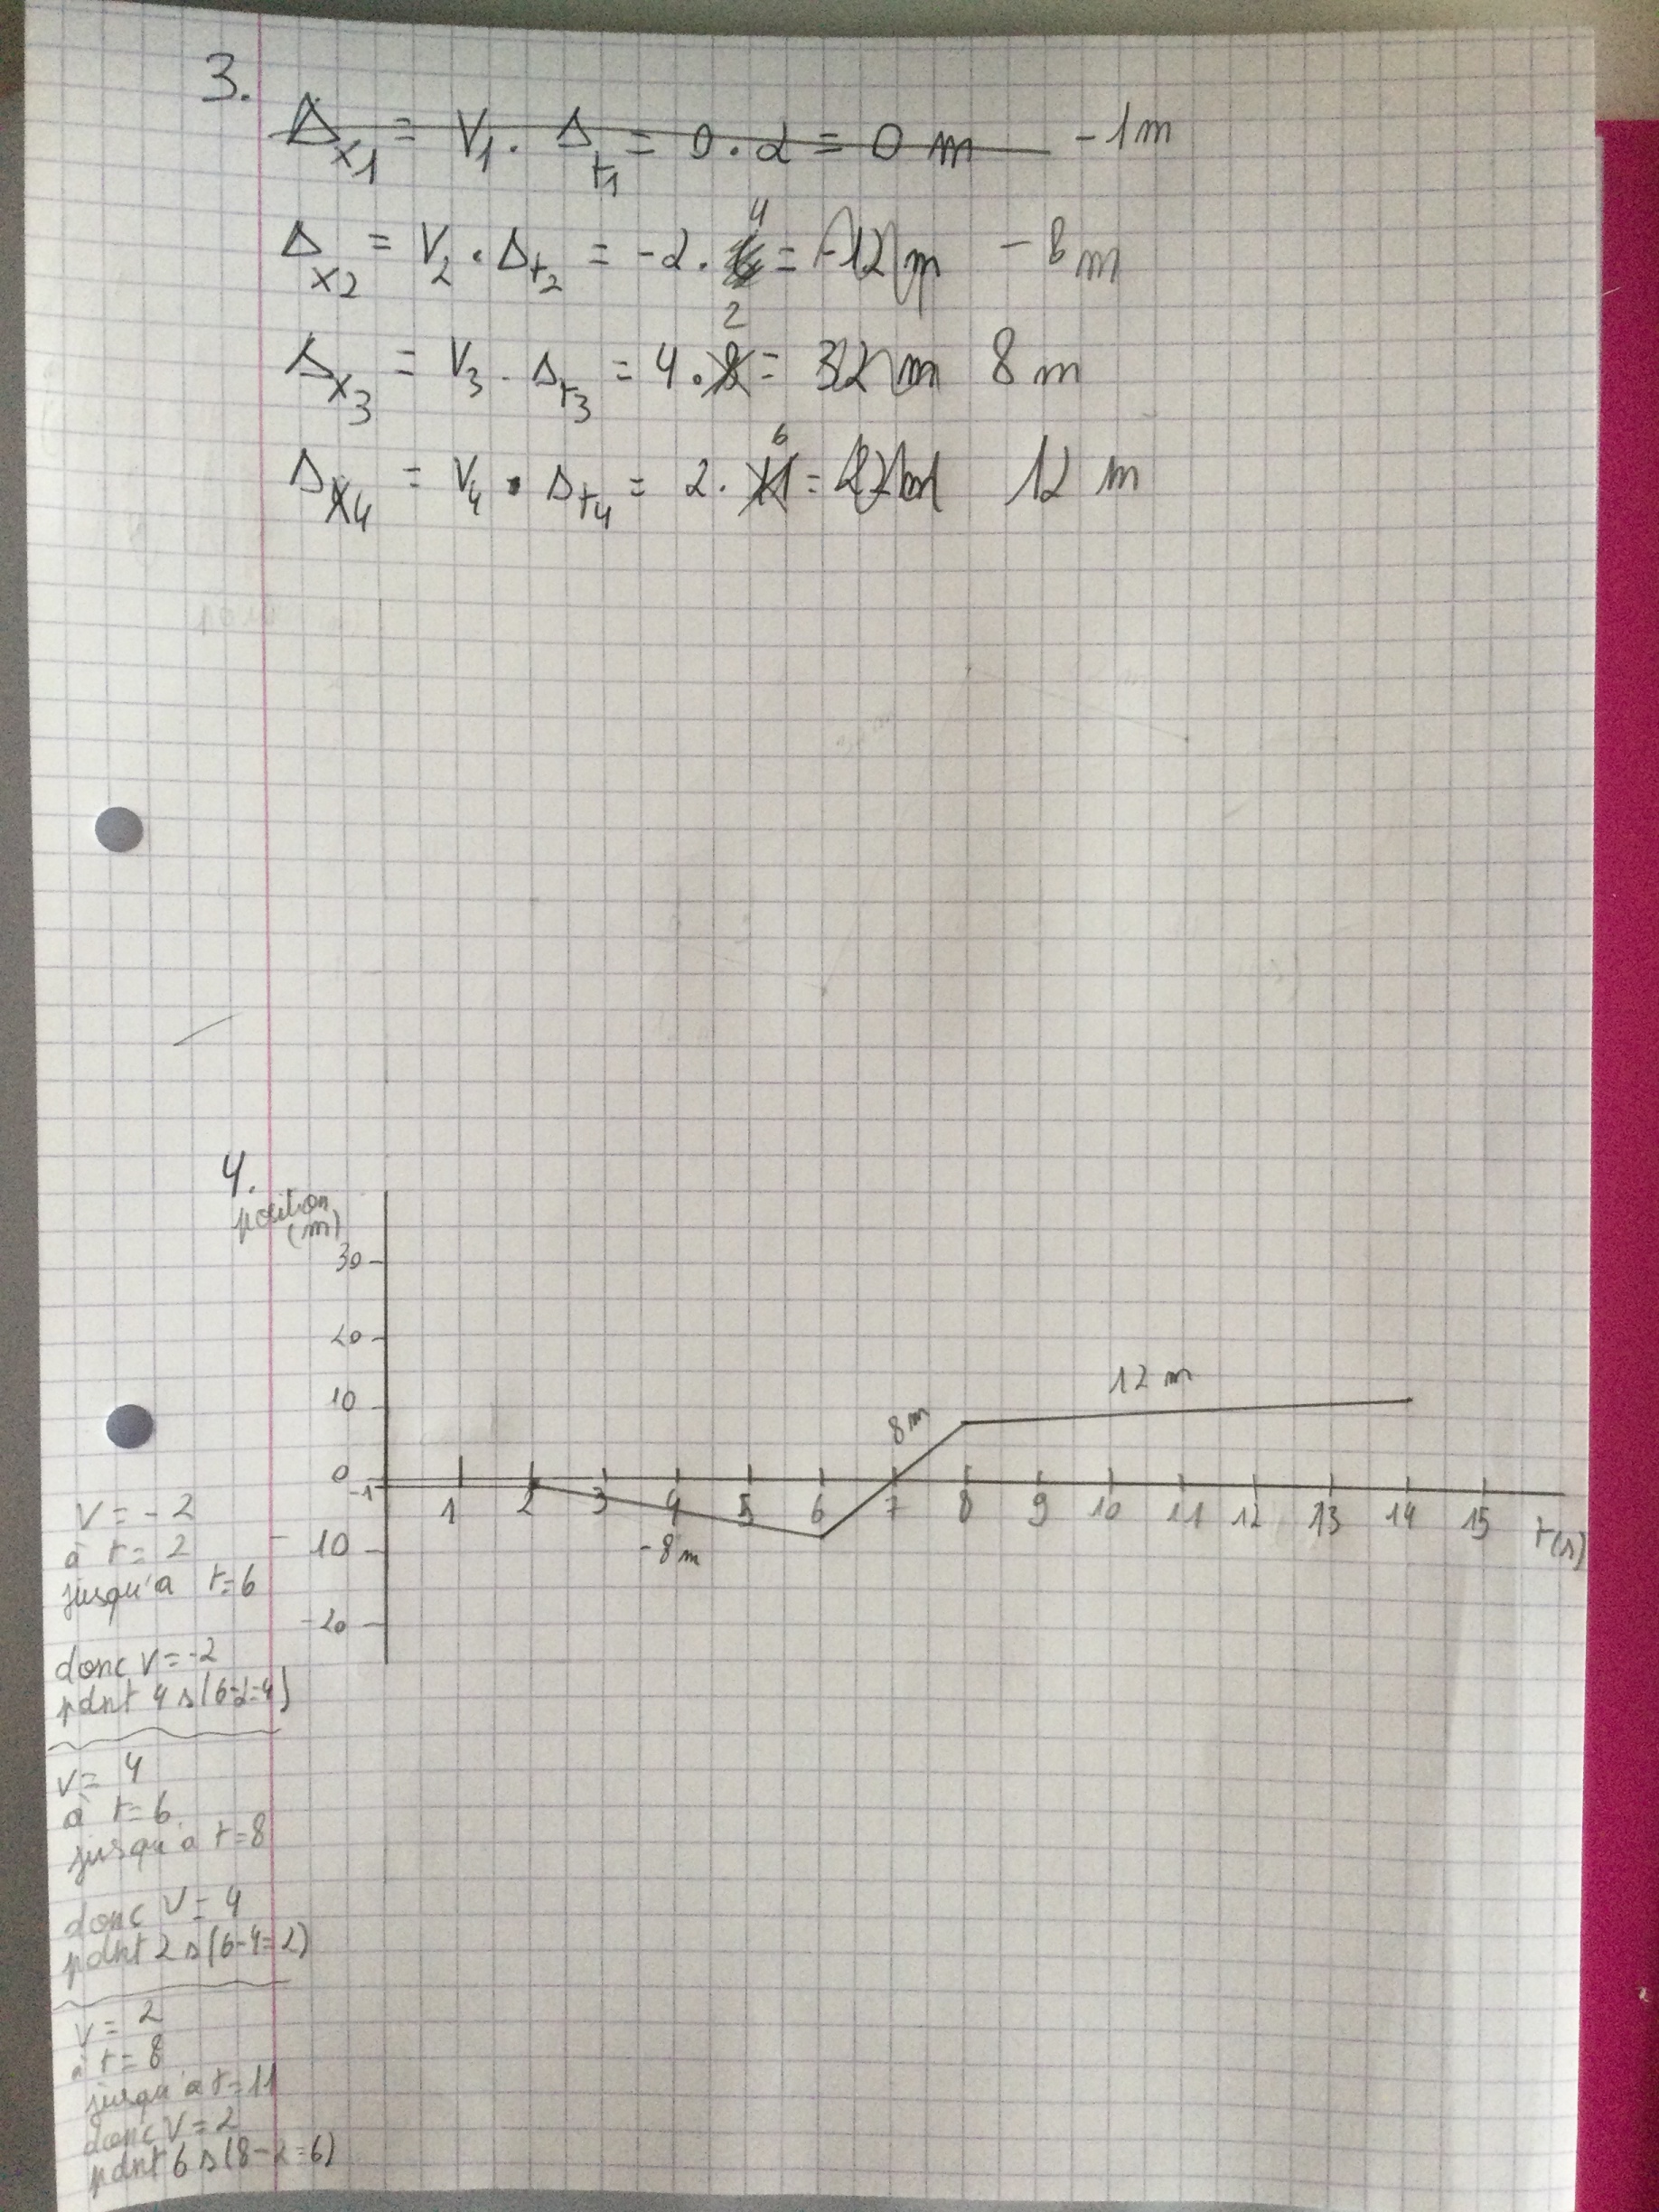 3.
Δx1 = V1 . Δt1 = 0 . 2 = 0 m -1m
4
Δx2 = V2 . Δt2 = -2 . 6 = -12 m -8 m
2
Δx3 = V3 . Δt3 = 4 . 8 = 32 m 8 m
6
Δx4 = V4 . Δt4 = 2 . 11 = 22 m 12 m
4.
position
(m)
30
20
12 m
10
8m
0
-1
1 2 3 4 5 6 7 8 9 10 11 12 13 14 15 t(s)
-10
-8m
-20
V = -2
à t = 2
jusqu'a t=6
donc V = -2
pdnt 4 s (6-2=4)
V = 4
à t=6
jusqu'a t=8
donc V = 4
pdnt 2 s (6-4=2)
V = 2
à t= 8
jusqu'a t=11
donc V = 2
pdnt 6 s (8-2=6)